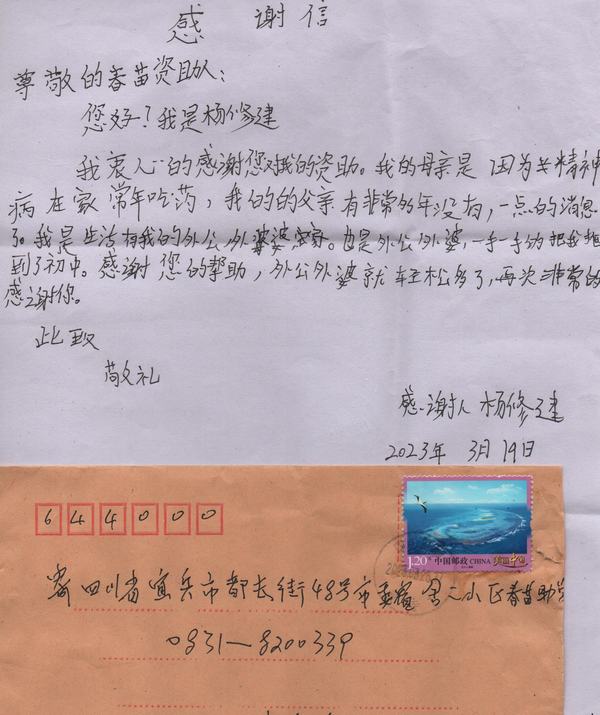 感谢信
尊敬的春苗资助人：
您好！我是杨修建
我衷心的感谢您对我的资助。我的母亲是因为精神
病在家常年吃药，我的的父亲有非常多年没有，一点的消息
了。我是生活在我的外公，外婆婆家。也是外公外婆，一手一手的把我
到了初中。感谢您的帮助，外公外婆就轻松多了，再次非常的
感谢你。
此致
敬礼
感谢人杨修建
2023年3月19日
644000
1.20
中国邮政 CHINA 美丽中国
四川省宜宾市都长街48号市 舍二小区春苗助学
0831—8200339